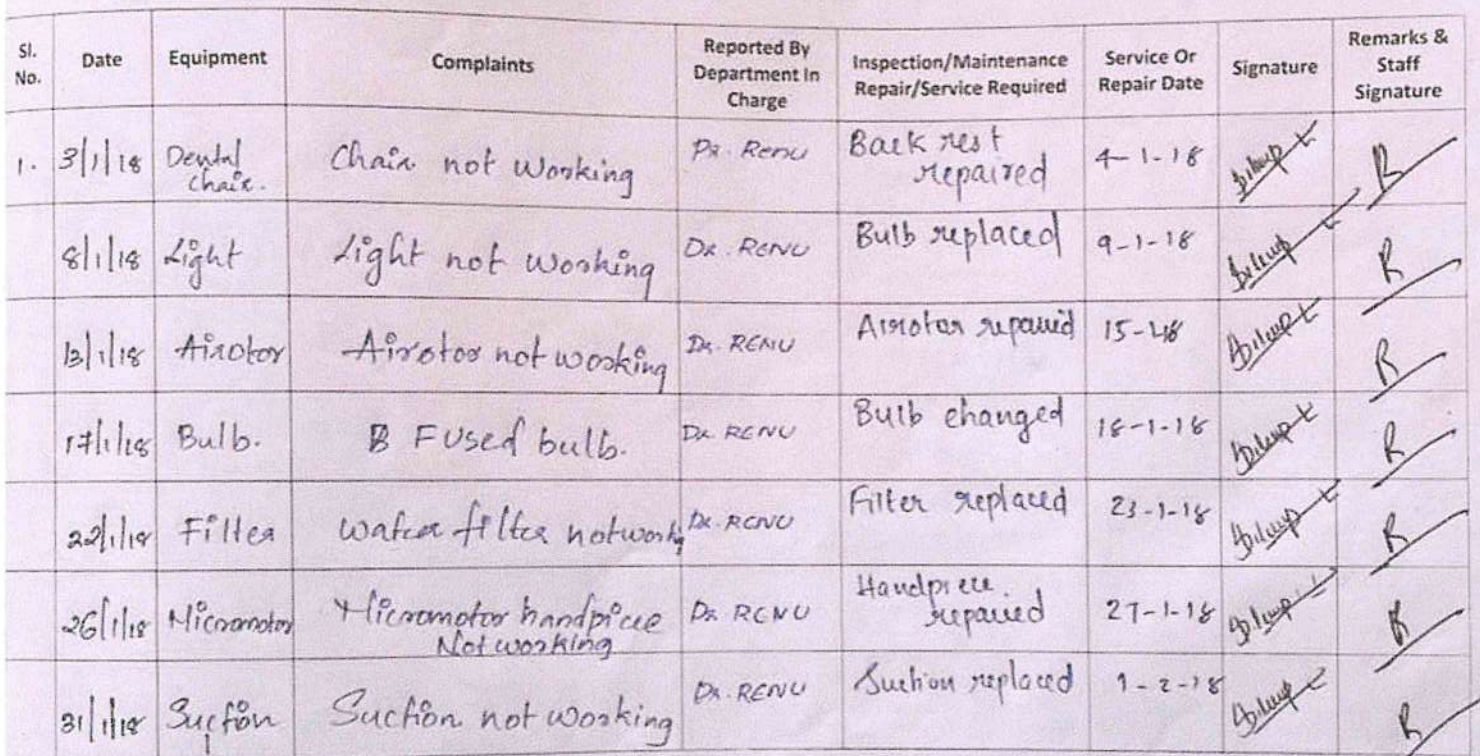 Sl. No. Date Equipment Complaints Reported By Department In Charge Inspection/Maintenance Repair/Service Required Service Or Repair Date Signature Remarks & Staff Signature
1. 3/1/18 Dental chair. Chair not working Dr. Renu Back rest repaired 4-1-18 R
8/1/18 Light Light not working Dr. RENU Bulb replaced 9-1-18 R
13/1/18 Airotor Airotor not working Dr. RENU Airotor repaired 15-1-18 R
17/1/18 Bulb. B Fused bulb. Dr. RENU Bulb changed 18-1-18 R
22/1/18 Filter Water filter not working Dr. RENU Filter replaced 23-1-18 R
26/1/18 Micromotor Micromotor handpiece Not working Dr. RENU Handpiece repaired 27-1-18 R
31/1/18 Suction Suction not working Dr. RENU Suction replaced 1-2-18 R